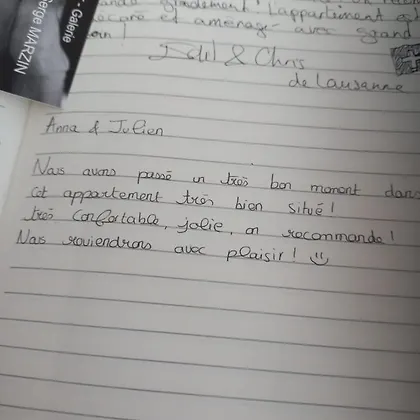 grandement! L'appartement est
décoré et aménagé avec grand
soin!
& Chris
de Lausanne
- Galerie
erge MARZIN
Anna & Julien
Nous avons passé un très bon moment dans
cet appartement très bien situé!
très confortable, jolie, on recommande!
Nous reviendrons avec plaisir! ☺